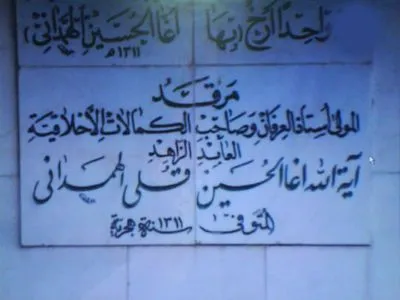 واحداً أرخ (بها آغا الحسين الهمداني)
١٣١١هـ
مرقد
المولى أستاذ العرفان وصاحب الكمالات الأخلاقية
العابد الزاهد
آية الله اغا الحسين قلي الهمداني
المتوفى ١٣١١ سنة هجرية